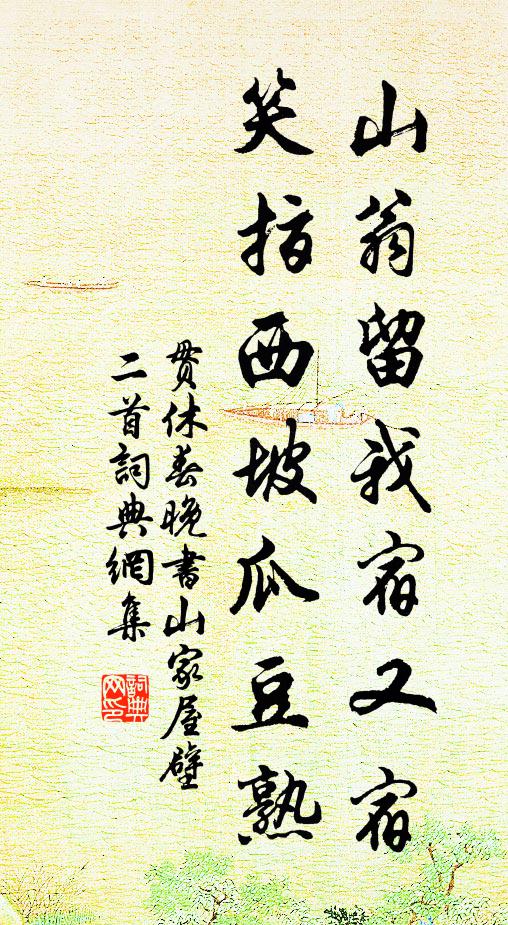 山翁留我宿又宿
笑指西坡瓜豆熟
貫休春晚書山家屋壁
二首詞典網集
詞典
网印